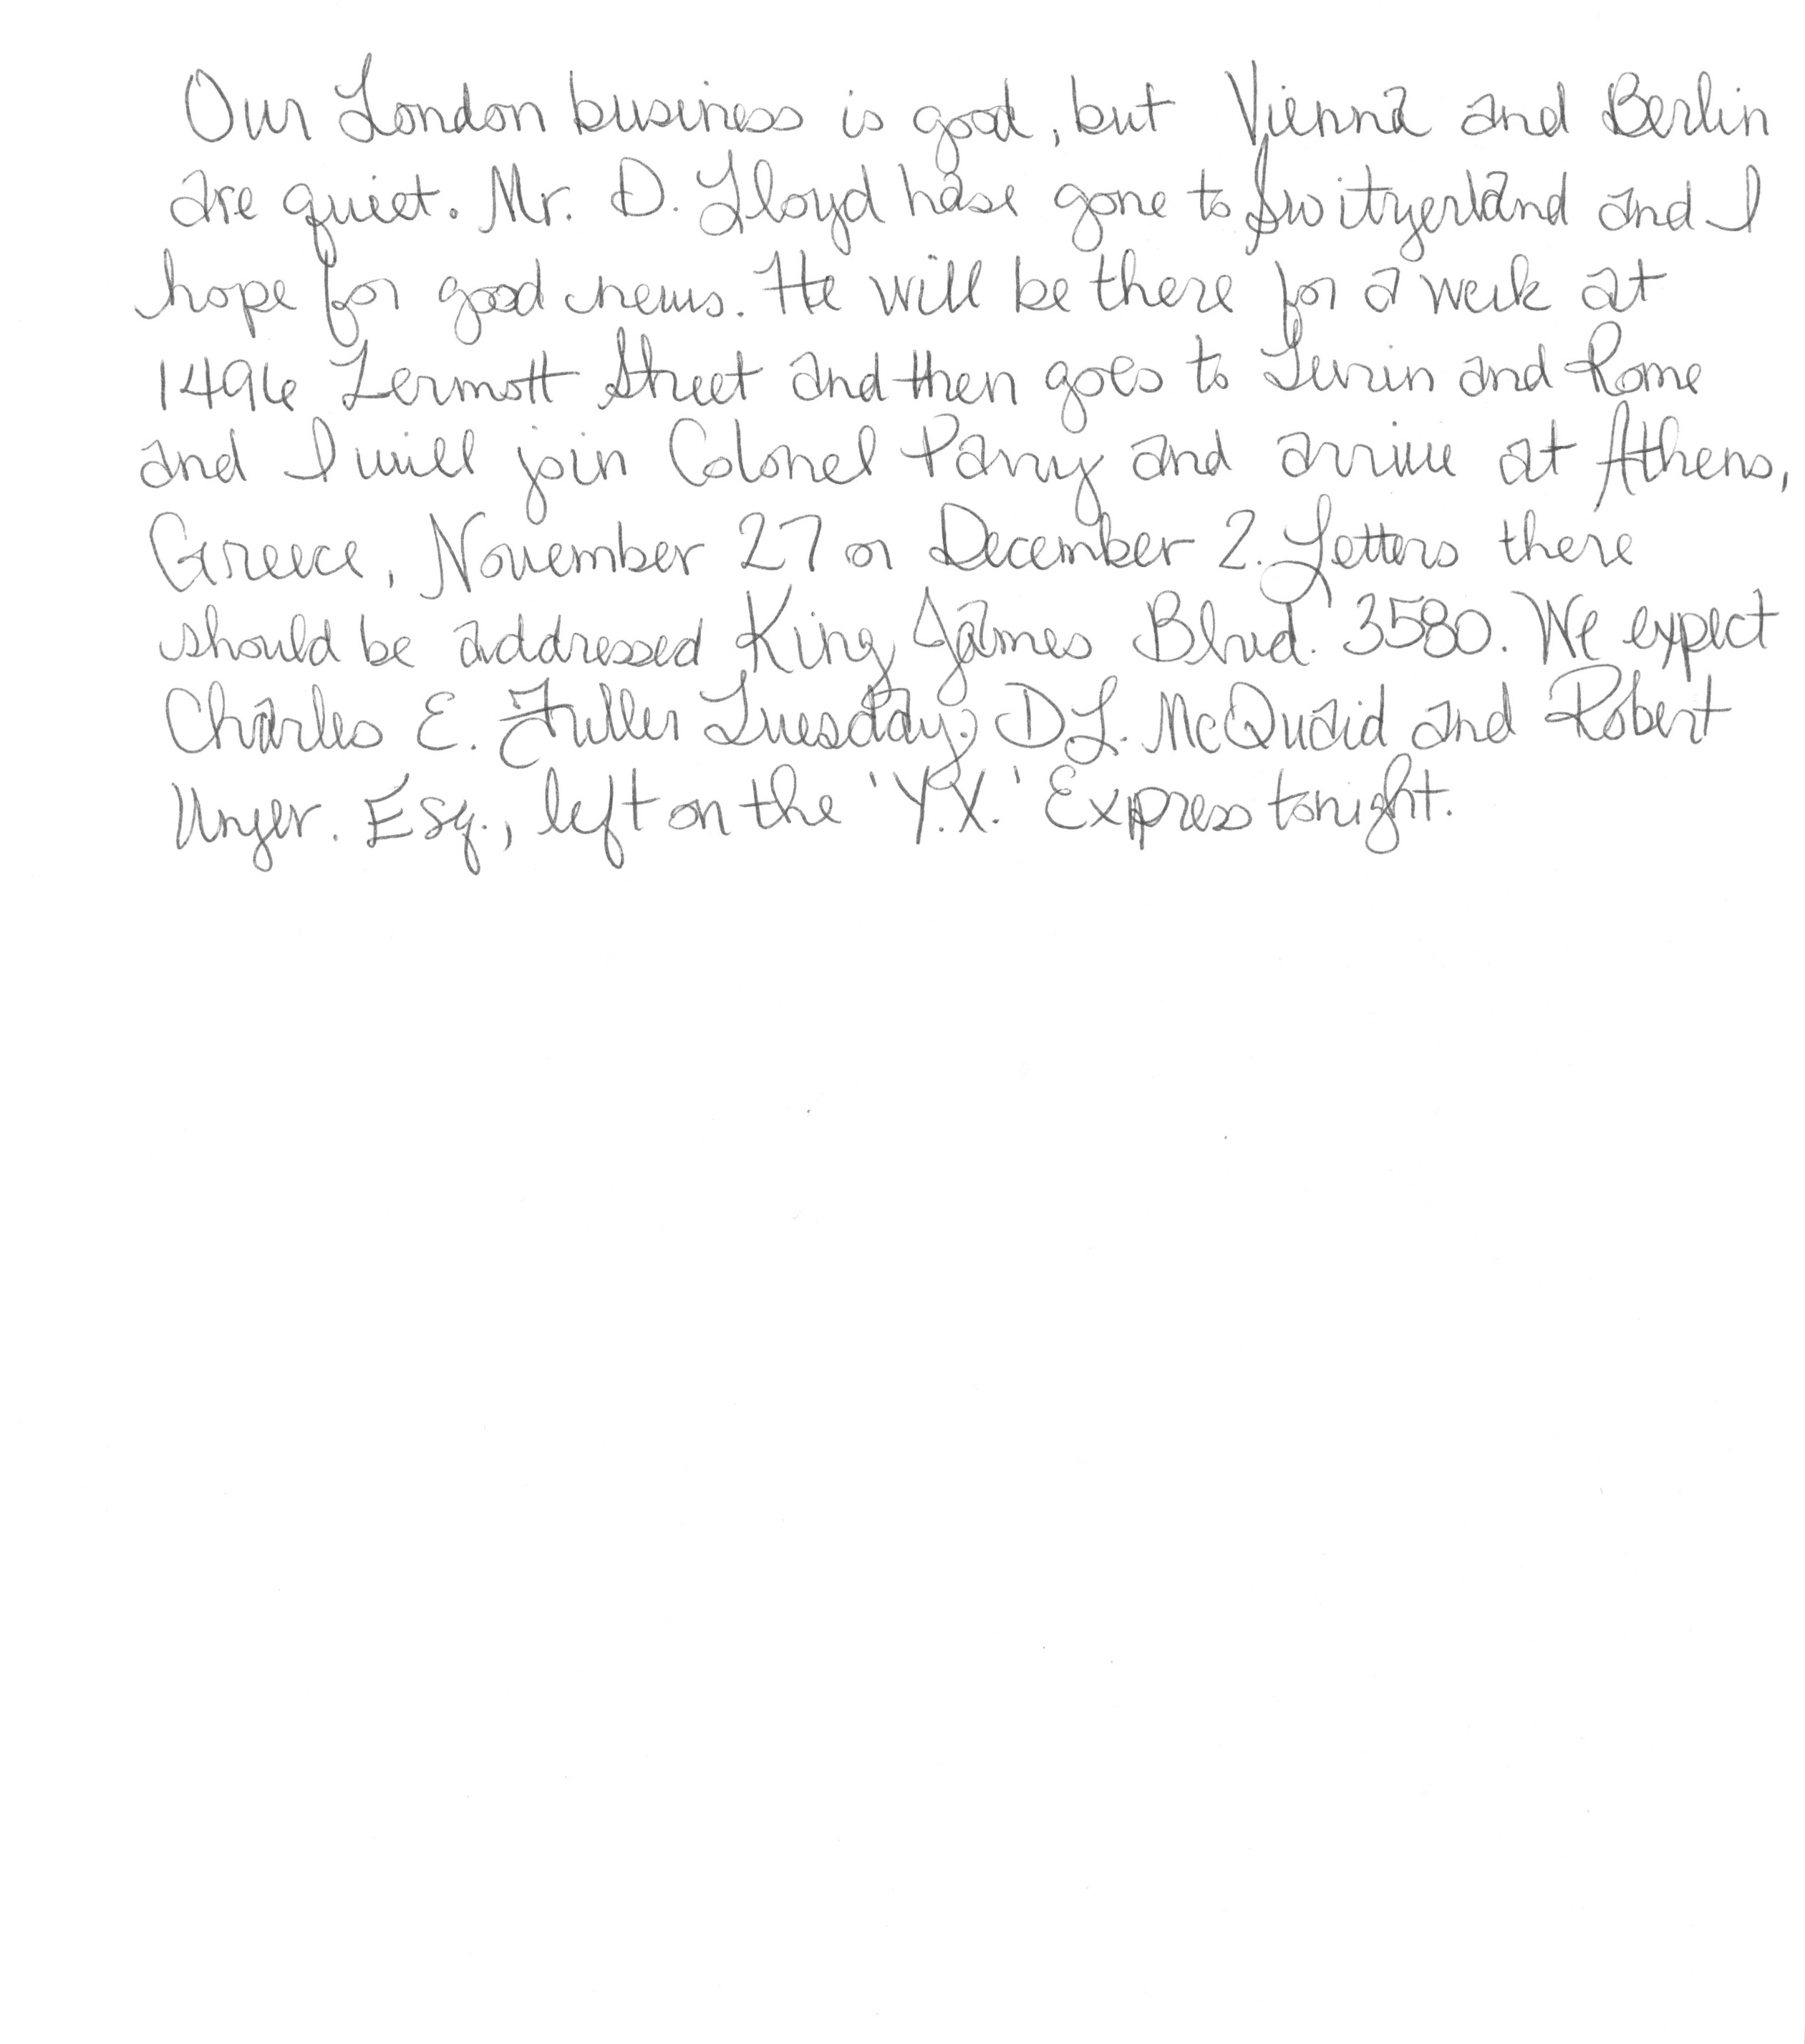 Our London business is good, but Vienna and Berlin
are quiet. Mr. D. Lloyd hase gone to Switzerland and I
hope for good news. He will be there for a week at
1496 Zermott Street and then goes to Turin and Rome
and I will join Colonel Parry and arrive at Athens,
Greece, November 27 or December 2. Letters there
should be addressed King James Blvd. 3580. We expect
Charles E. Fuller Tuesday. D.L. McQuaid and Robert
Unger. Esq., left on the 'Y.X.' Express tonight.